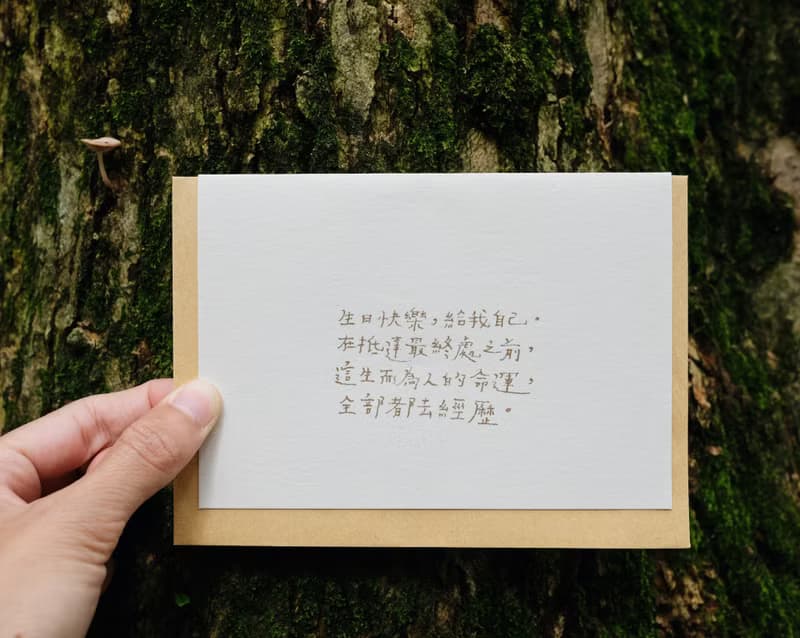 生日快樂，給我自己。
在抵達最終處之前，
這生而為人的命運，
全部都去經歷。